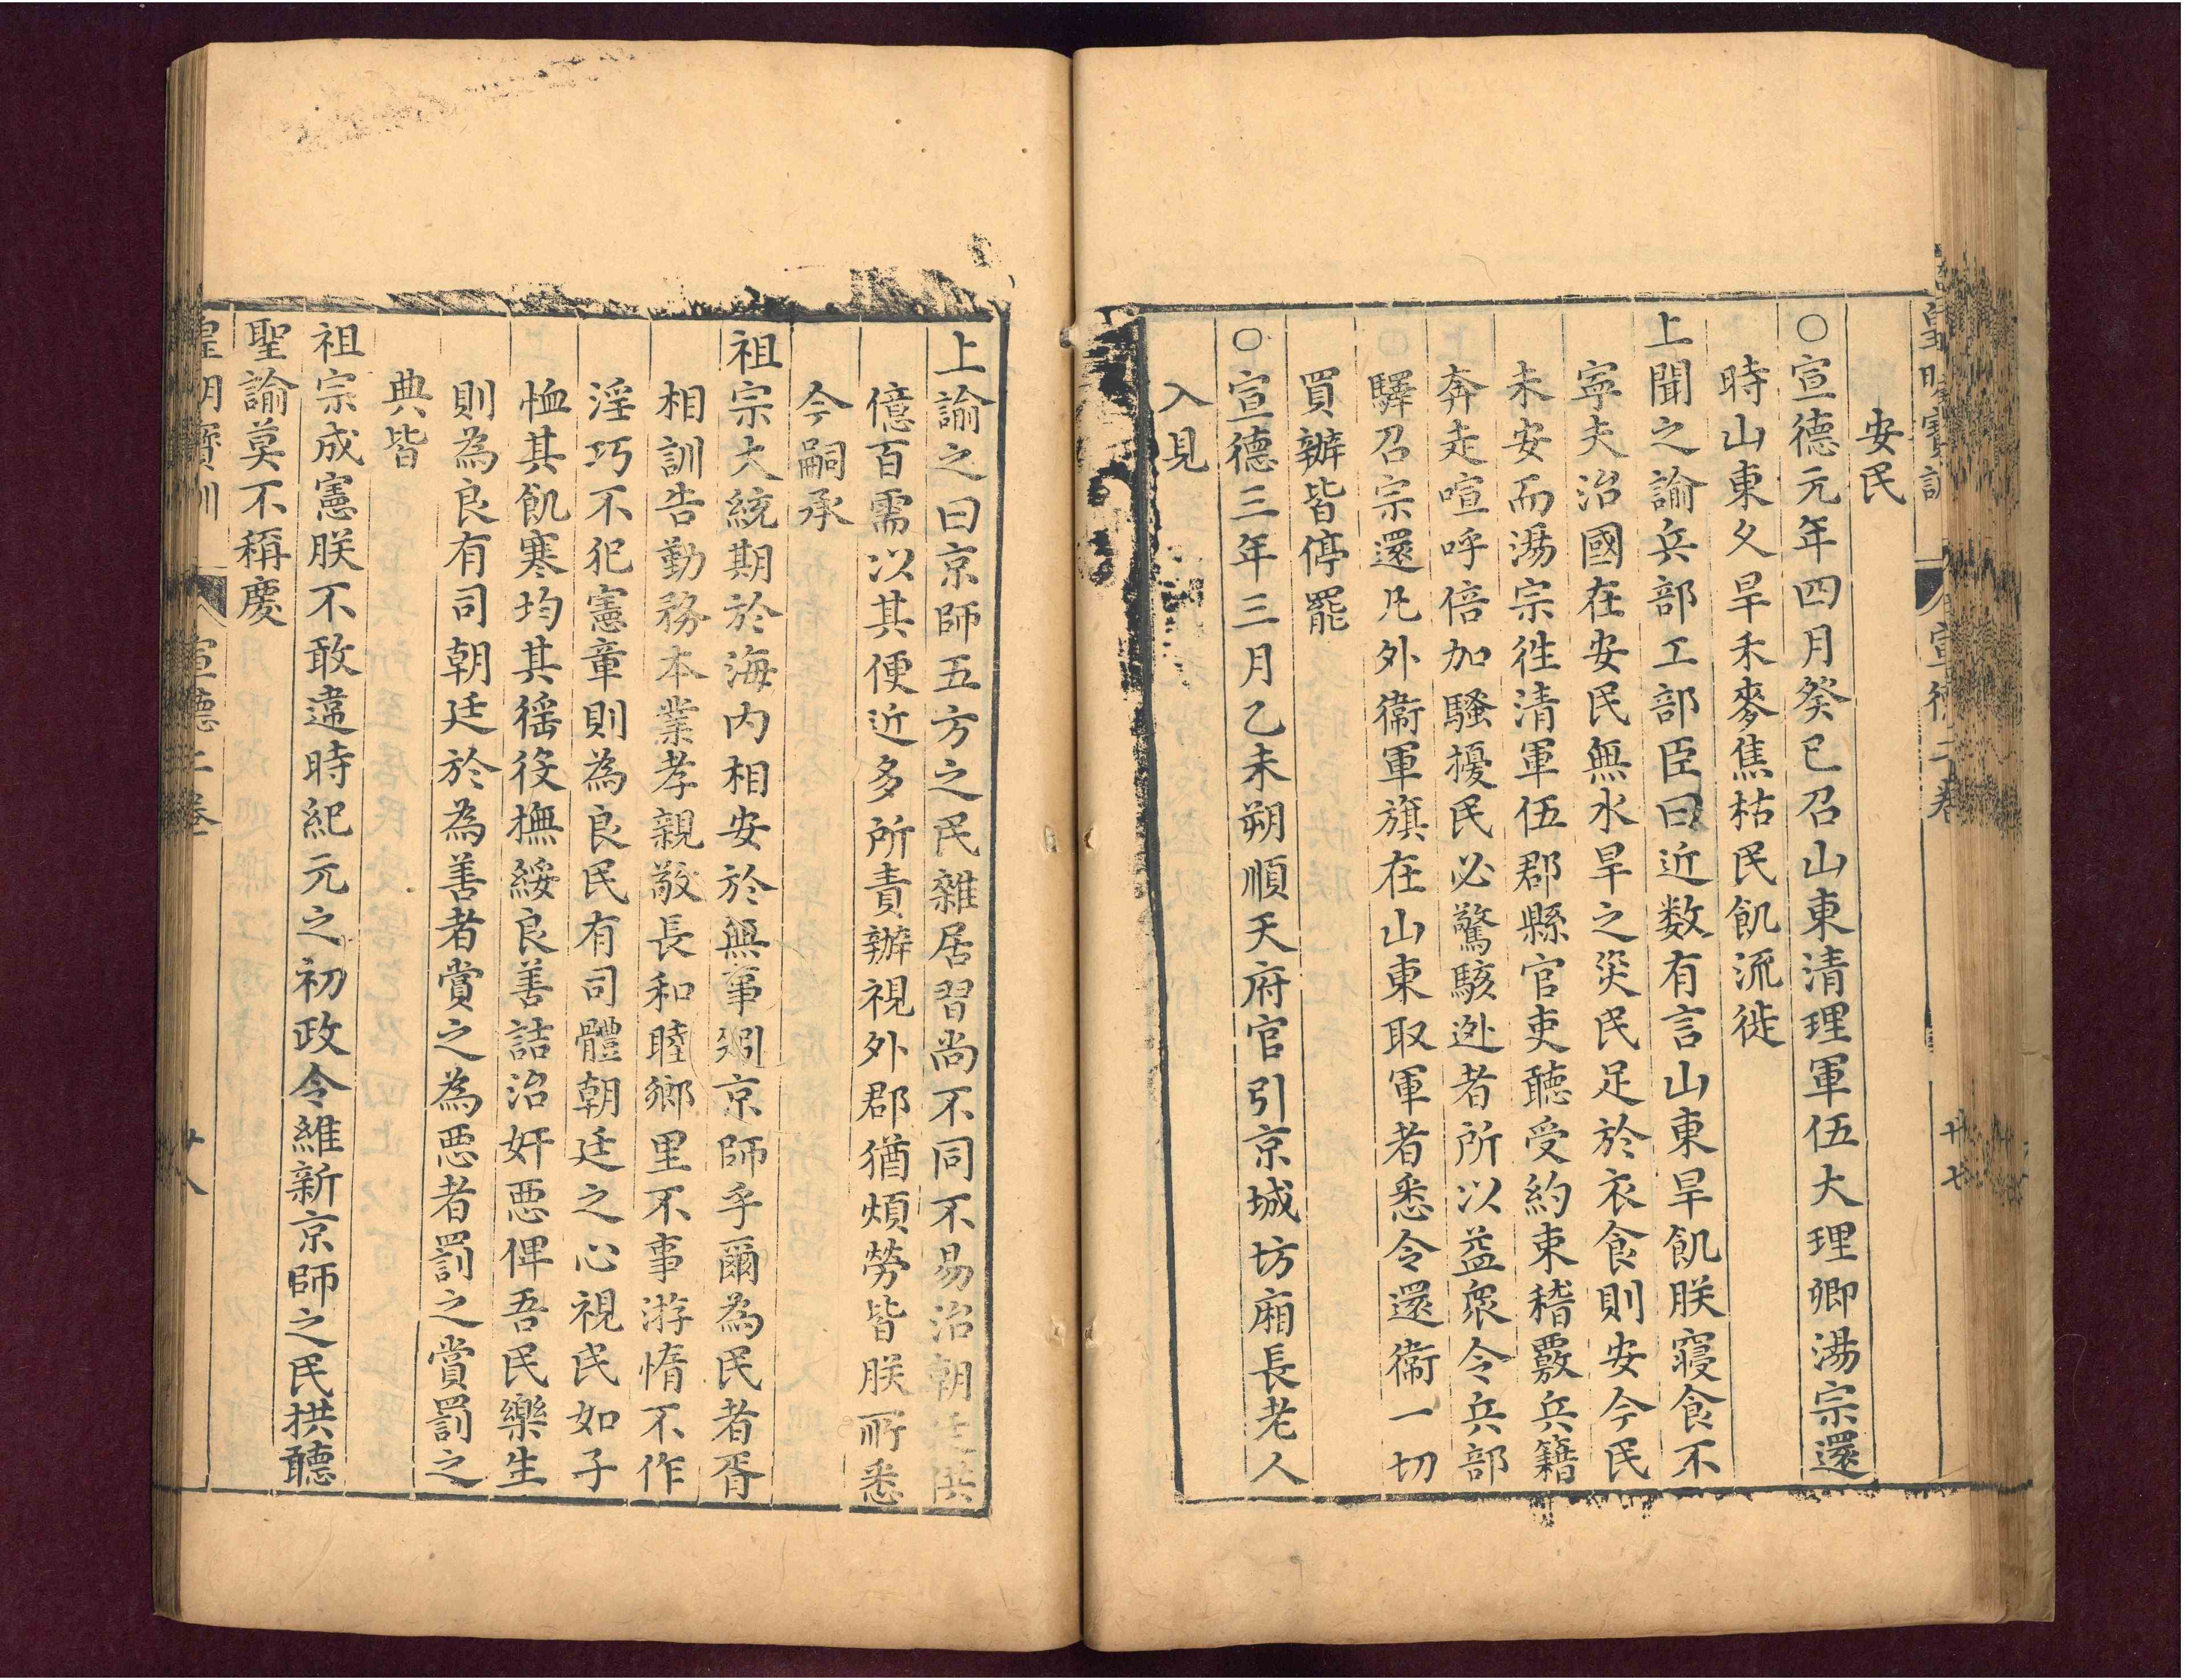 皇明寶訓 宣德二卷 廿七
安民
○宣德元年四月癸巳召山東清理軍伍大理卿湯宗還
時山東久旱禾麥焦枯民飢流徙
上聞之諭兵部工部臣曰近数有言山東旱飢朕寢食不
寧夫治國在安民無水旱之災民足於衣食則安今民
未安而湯宗徃清軍伍郡縣官吏聽受約束稽覈兵籍
奔走喧呼倍加騷擾民必驚駭迯者所以益衆令兵部
驛召宗還凡外衞軍旗在山東取軍者悉令還衞一切
買辦皆停罷
○宣德三年三月乙未朔順天府官引京城坊廂長老人
入見
上諭之曰京師五方之民雜居習尚不同不易治朝廷供
億百需以其便近多所責辦視外郡猶煩勞皆朕所悉
今嗣承
祖宗大統期於海内相安於無事矧京師乎爾為民者胥
相訓告勤務本業孝親敬長和睦鄉里不事游惰不作
淫巧不犯憲章則為良民有司體朝廷之心視民如子
恤其飢寒均其徭役撫綏良善詰治奸惡俾吾民樂生
則為良有司朝廷於為善者賞之為惡者罰之賞罰之
典皆
祖宗成憲朕不敢違時紀元之初政令維新京師之民拱聽
聖諭莫不稱慶
皇明寶訓 宣德二卷 廿八